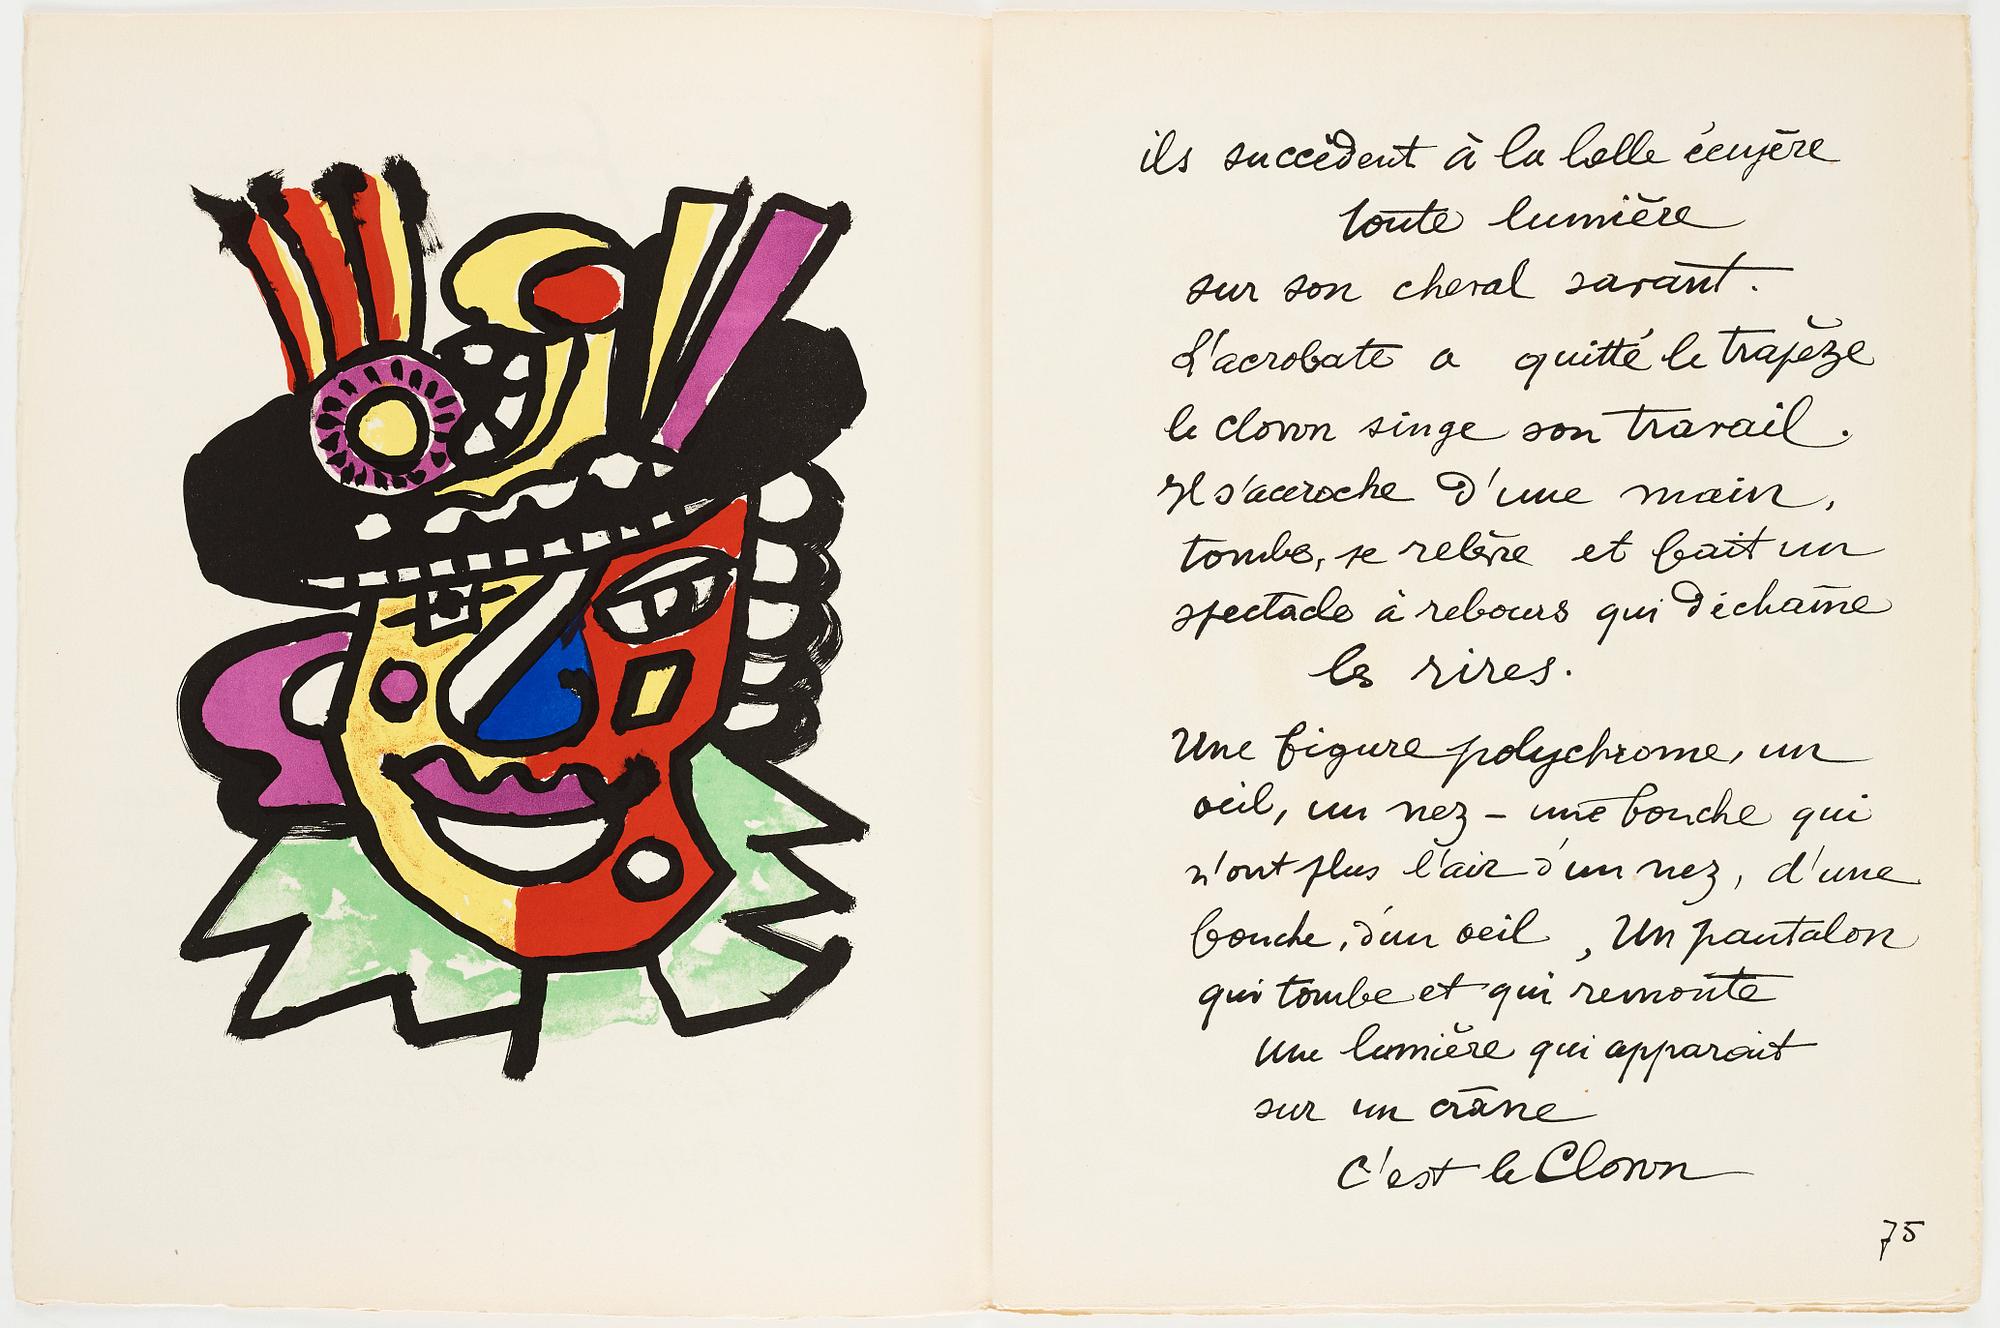 ils succèdent à la belle écuyère
toute lumière
sur son cheval savant.
L'acrobate a quitté le trapèze
le clown singe son travail.
Il s'accroche d'une main,
tombe, se relève et fait un
spectacle à rebours qui déchaîne
les rires.
Une figure polychrome, un
oeil, un nez – une bouche qui
n'ont plus l'air d'un nez, d'une
bouche, d'un oeil, Un pantalon
qui tombe et qui remonte
une lumière qui apparait
sur un crâne
C'est le Clown
75